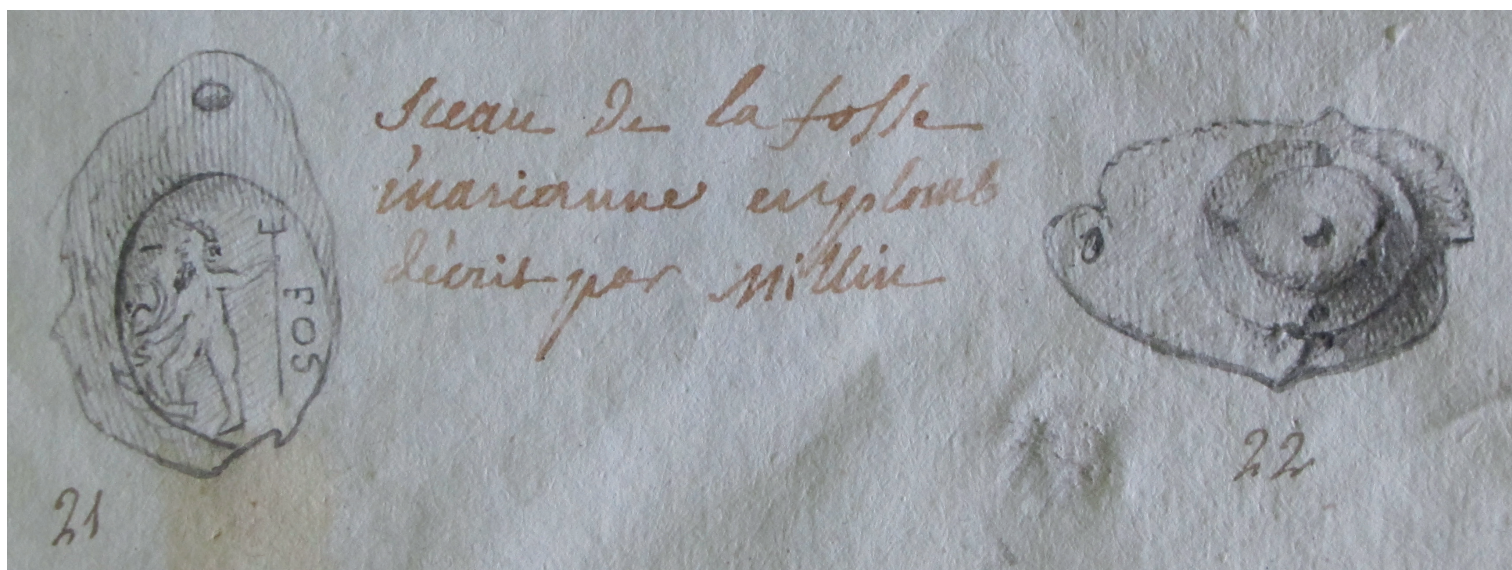 sceau de la fosse
marianne en plomb
décrit par Millin
FOS
21
22